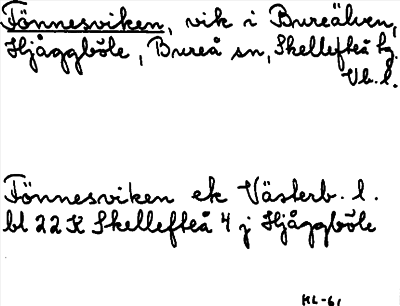 Tönnesviken, vik i Bureälven,
Hjåggböle, Bureå sn, Skellefteå tg.
Vb.l.
Tönnesviken ek Västerb. l.
bl 22 K Skellefteå 4 j Hjåggböle
KL-61